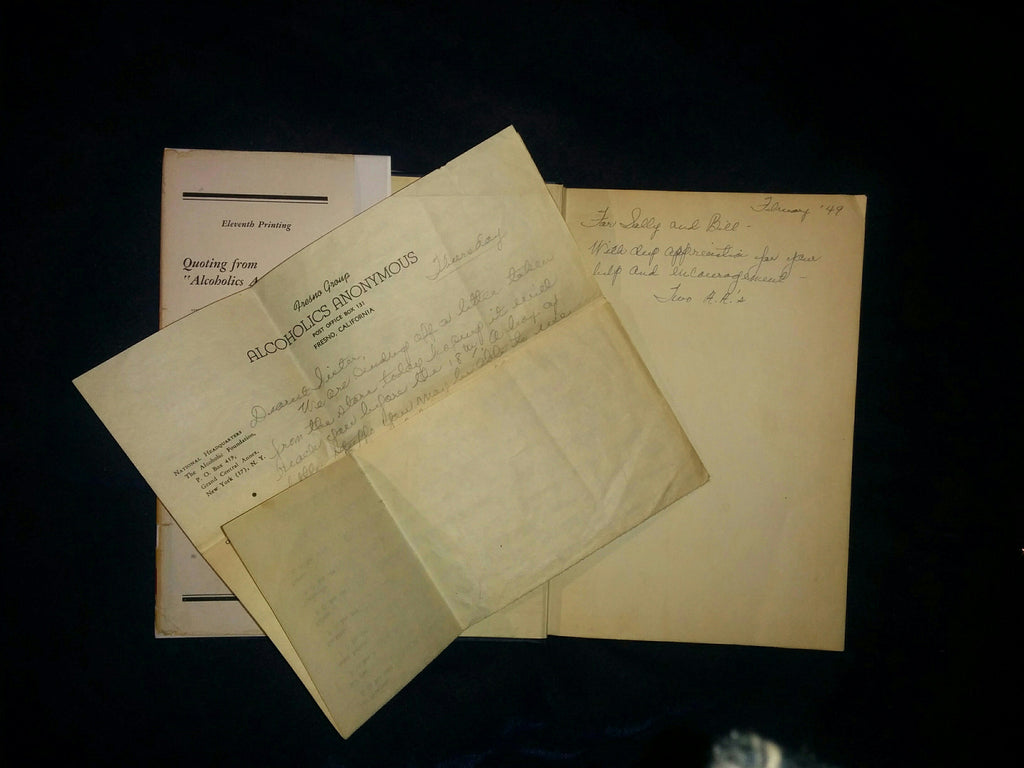 Eleventh Printing
Quoting from
"Alcoholics A
Fresno Group
ALCOHOLICS ANONYMOUS
POST OFFICE BOX 131
FRESNO, CALIFORNIA
Thursday
NATIONAL HEADQUARTERS
The Alcoholic Foundation,
P. O. Box 459,
Grand Central Annex,
New York (17), N. Y.
Dearest Sister,
We are sending off a little token
from the store today hoping it will
reach you before the 18th. A lady
February '49
For Sally and Bill -
With deep appreciation for your
help and encouragement -
Two A.A.'s